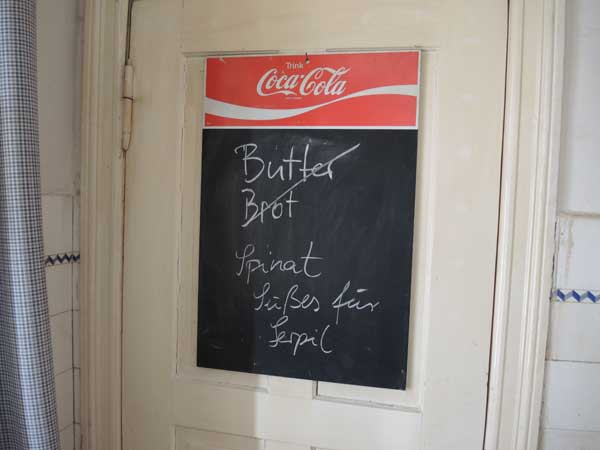 Trink
Coca-Cola
Butter
Brot
Spinat
Süßes für
Serpil